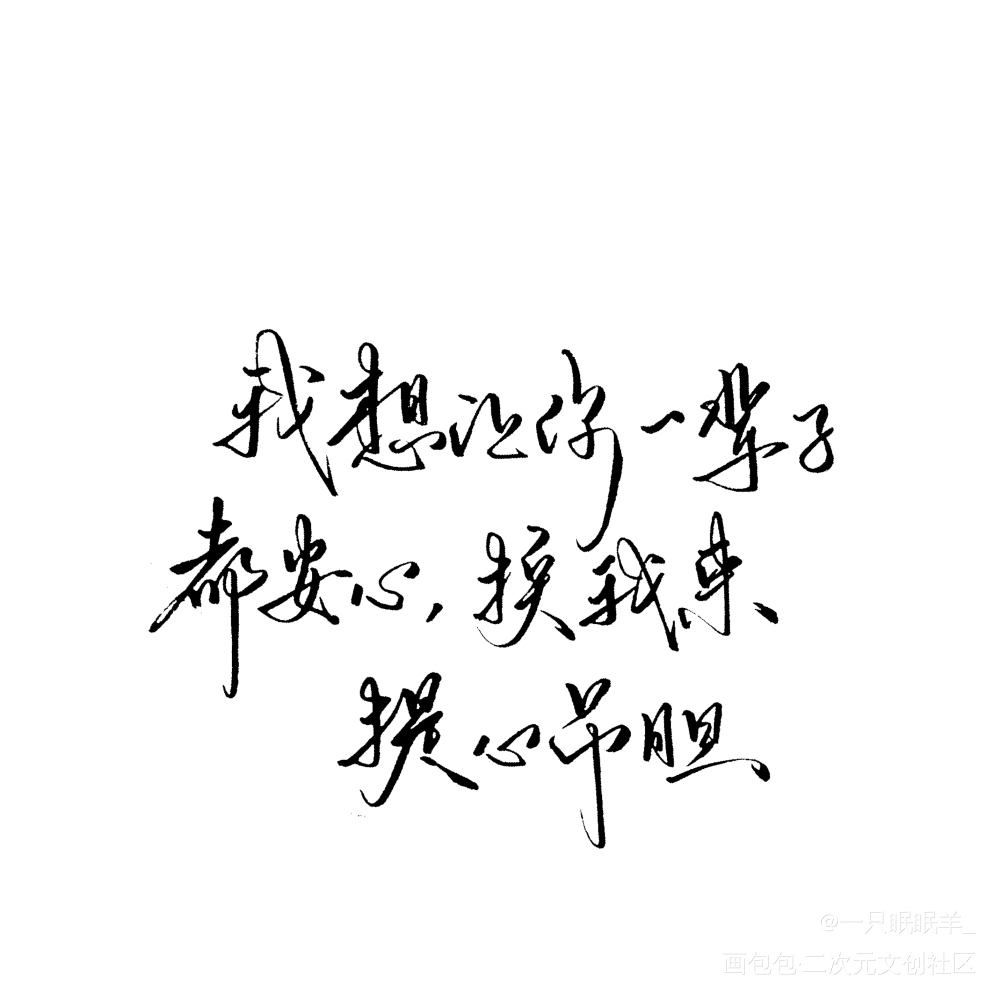 我想让你一辈子
都安心，换我来
提心吊胆
@一只眠眠羊_
画包包·二次元文创社区